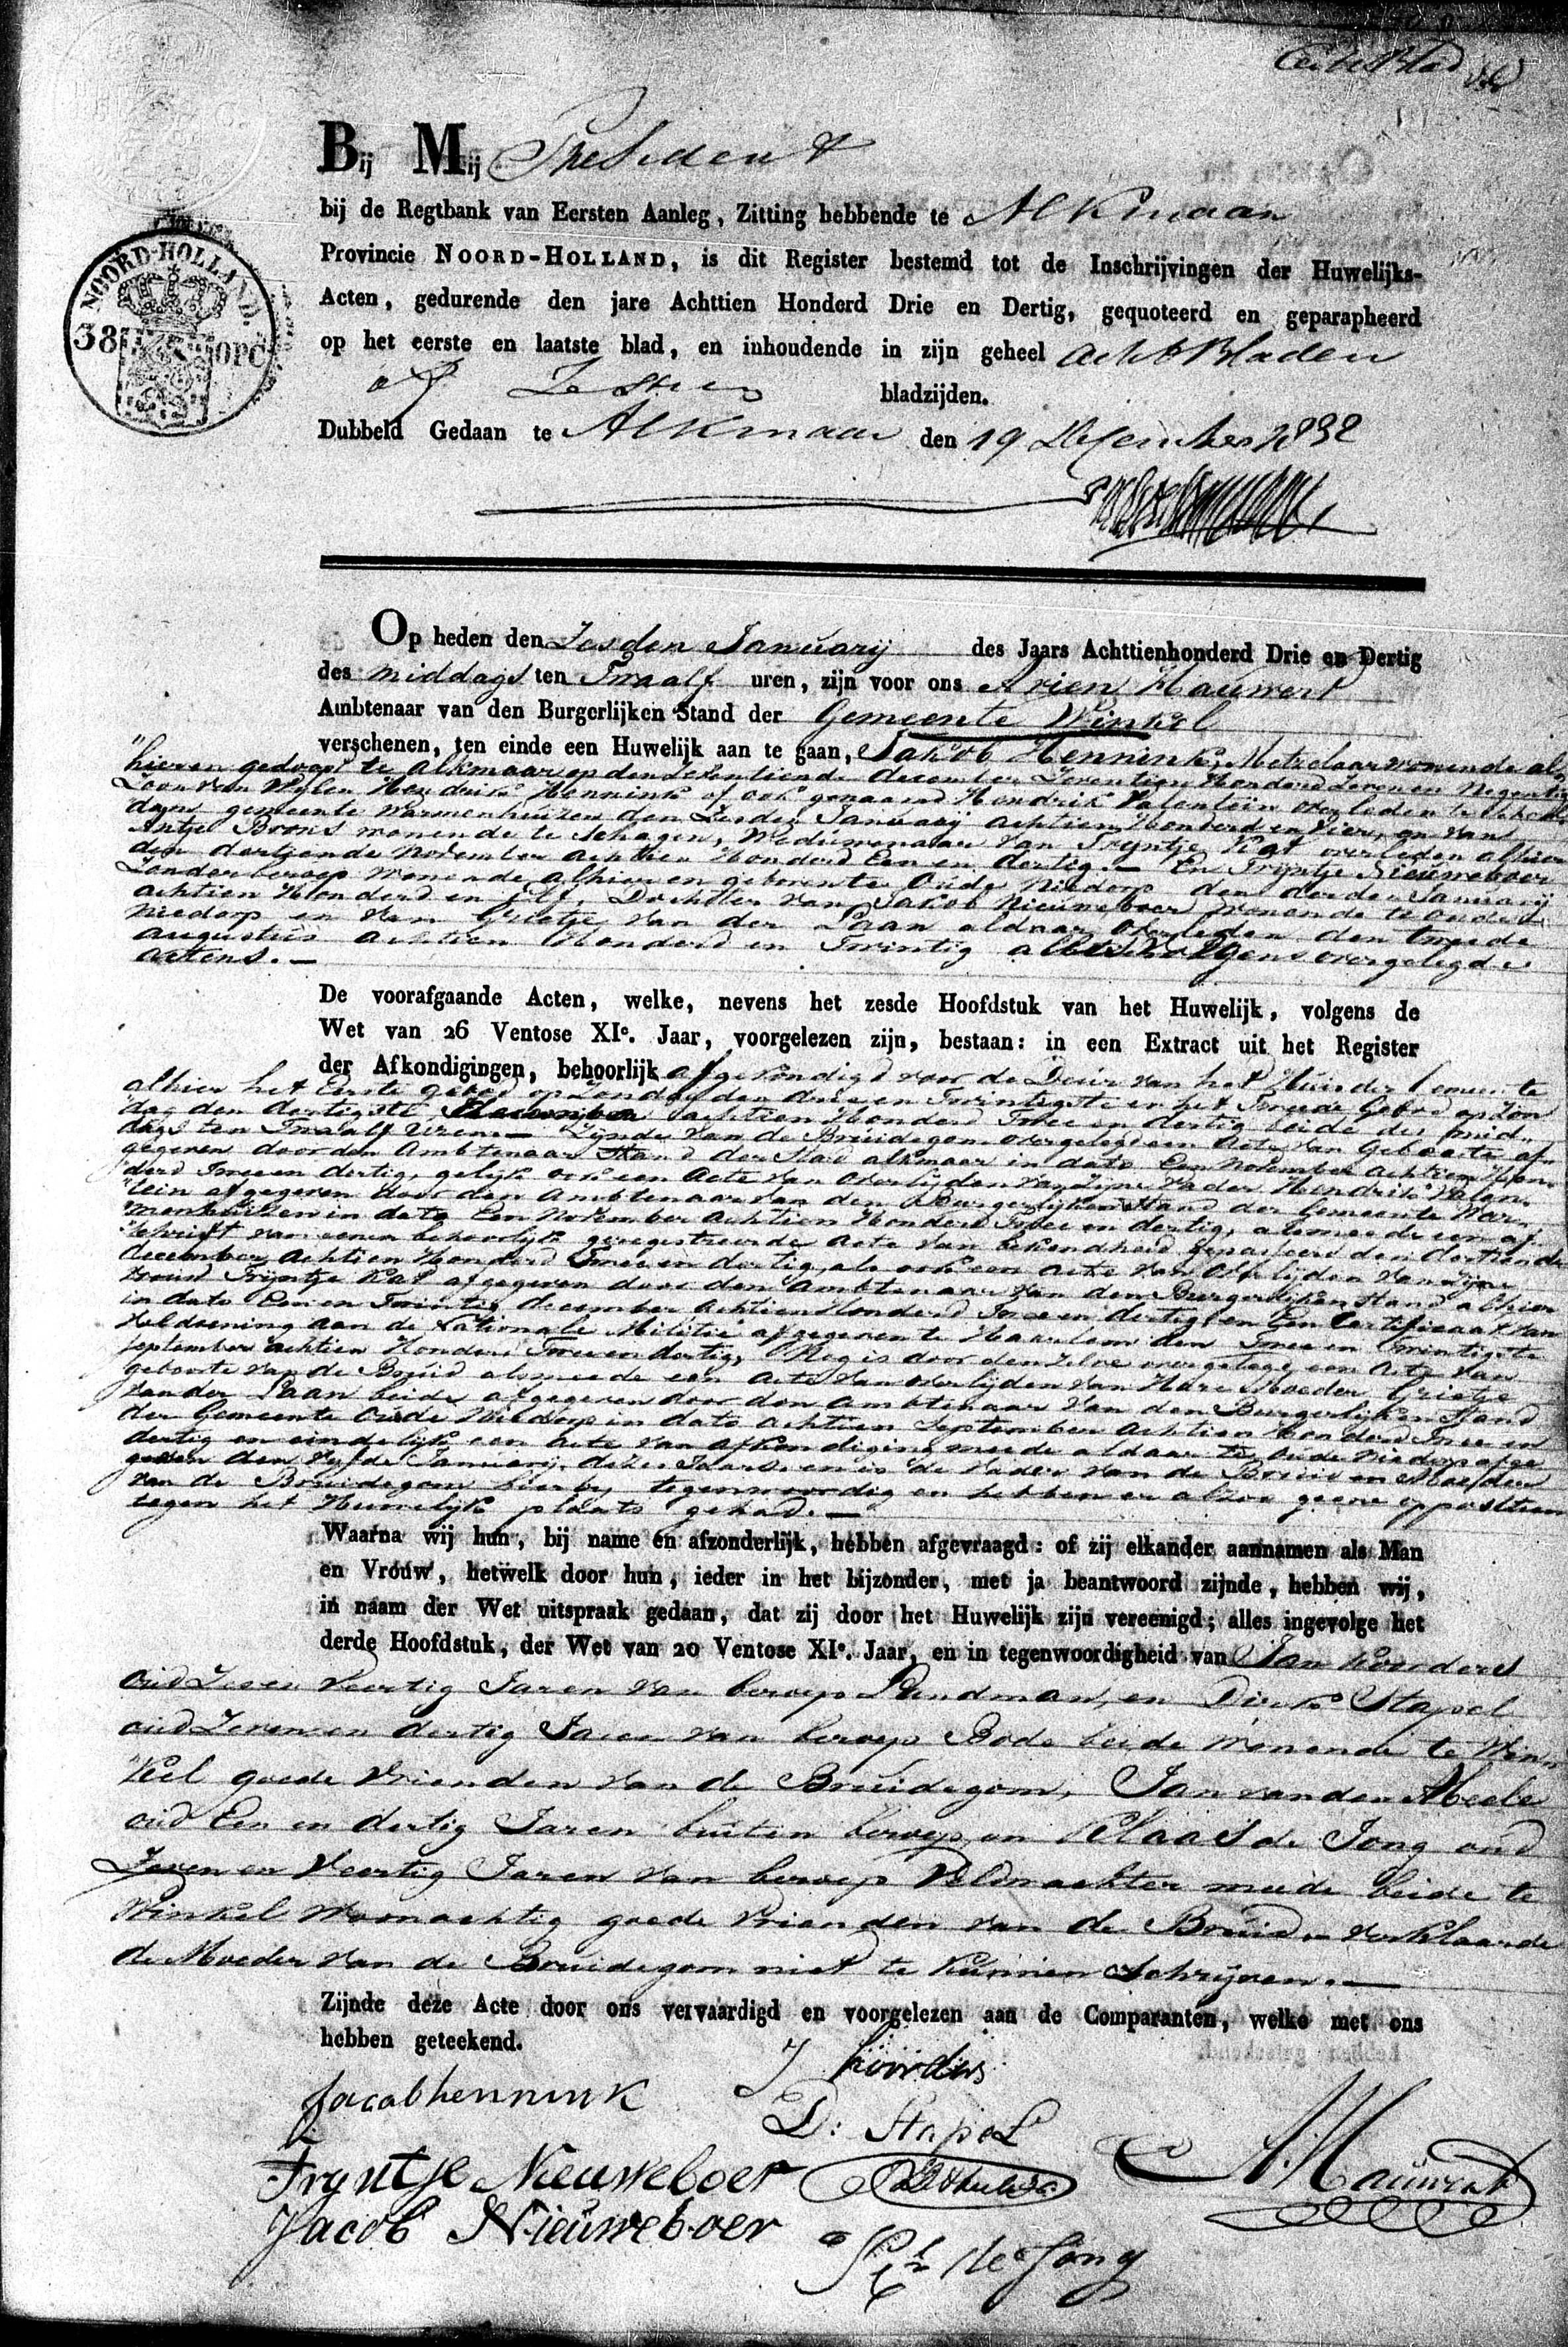 Eerste Blad
Bij Mij President
bij de Regtbank van Eersten Aanleg, Zitting hebbende te Alkmaar
Provincie NOORD-HOLLAND, is dit Register bestemd tot de Inschrijvingen der Huwelijks-
Acten, gedurende den jare Achttien Honderd Drie en Dertig, gequoteerd en geparapheerd
op het eerste en laatste blad, en inhoudende in zijn geheel acht Bladen
of Zestien bladzijden.
NOORD-HOLLAND.
38 OPC
Dubbeld Gedaan te Alkmaar den 19 December 1832
Op heden den Zesden Januarij des Jaars Achttienhonderd Drie en Dertig
des middags ten Twaalf uren, zijn voor ons Arien Hauwert
Ambtenaar van den Burgerlijken Stand der Gemeente Winkel
verschenen, ten einde een Huwelijk aan te gaan, Jakob Hennink, Metzelaar wonende al-
"hier en gedoopt te Alkmaar op den Zeventiende december Zeventien Honderd Zeven en Negentig
Zoon van Wylen Hendrik Hennink of ook genaamd Hendrik Valentein overleden te
dam gemeente Warmenhuizen den Zesden Januarij achtien Honderd en Vier, en van
Antje Brons wonende te Schagen, Weduwenaar van Tryntje Kat overleden alhier
den dertiende November achtien Honderd Een en dertig. — En Trijntje Nieuweboer
Zonder beroep wonende alhier en geboren te Oude Niedorp den derden Januarij
achtien Honderd en Elf, Dochter van Jakob Nieuweboer wonende te Oude
Niedorp en van Grietje van der Laan aldaar overleden den tweede
augustus achtien Honderd en Twintig alles volgens overgelegde
actens. —
De voorafgaande Acten, welke, nevens het zesde Hoofdstuk van het Huwelijk, volgens de
Wet van 26 Ventose XIe. Jaar, voorgelezen zijn, bestaan: in een Extract uit het Register
der Afkondigingen, behoorlijk afgekondigd voor de Deur van het Huis der Gemeente
alhier het Eerste gebod op Zondag den drie en Twintigste en het Tweede Gebod op Zon
"dag den dertigste december achtien Honderd Twee en dertig beide des mid"
dags ten Twaalf Uren. — Zijnde van de Bruidegom overgelegd een Acte van Geboorte af-
gegeven door den Ambtenaar Stand der Stad Alkmaar in dato Een November achtien Hon-
derd Twee en dertig, gelijk ook een Acte van overlijden van Zijne Vader Hendrik Valen-
"tein afgegeven door den Ambtenaar van den Burgerlijken Stand der Gemeente War-
"menhuizen in dato Een November achtien Honderd Twee en dertig, alsmede een af-
"schrift van eenen behoorlijk geregistreerde Acte van bekendheid gepasseerd den dertiende
december achtien Honderd Twee en dertig, als ook een Acte van overlijden van Zijne
vrouw Trijntje Kat afgegeven door den Ambtenaar van den Burgerlijken Stand alhier
in dato Een en Twintig december achtien Honderd Twee en dertig, en Een Certificaat van
voldoening aan de Nationale Militie afgegeven te Haarlem den Twee en Twintigste
September achtien Honderd Twee en dertig, Nog is door dezelve overgelegd een Acte van
geboorte van de Bruid alsmede een Acte van overlijden van Hare Moeder Grietje
van der Laan beide afgegeven door den Ambtenaar van den Burgerlijken Stand
der Gemeente Oude Niedorp in dato achtien September achtien Honderd Twee en
dertig en eindelijk een Acte van afkondiging mede aldaar te Oude Niedorp afge
geven den Vyfde Januarij dezes Jaars en is de Vader van de Bruid en Moeder
van de Bruidegom hierby tegenwoordig en hebben er alzoo geene oppositien
tegen het Huwelijk plaats gehad. —
Waarna wij hun, bij name en afzonderlijk, hebben afgevraagd: of zij elkander aannamen als Man
en Vrouw, hetwelk door hun, ieder in het bijzonder, met ja beantwoord zijnde, hebben wij,
in naam der Wet uitspraak gedaan, dat zij door het Huwelijk zijn vereenigd; alles ingevolge het
derde Hoofdstuk, der Wet van 20 Ventose XIe. Jaar, en in tegenwoordigheid van Jan Koorders
oud Zeven Veertig Jaren van beroep Landman, en Dirk Stapel
oud Zeven en dertig Jaren van beroep Bode beide wonende te Win-
"kel goede Vrienden van de Bruidegom, Jan van der Abeele
oud Een en dertig Jaren buiten beroep, en Klaas de Jong oud
Zeven en Veertig Jaren van beroep Veldwachter mede beide te
Winkel Woonachtig goede Vrienden van de Bruid, verklaarde
de Moeder van de Bruidegom niet te kunnen Schrijven. —
Zijnde deze Acte door ons vervaardigd en voorgelezen aan de Comparanten, welke met ons
hebben geteekend.
J Koorders
Jacob hennink
D: Stapel
A. Hauwert
Tryntje Nieuweboer
Jacob Nieuweboer
Kl de Jong